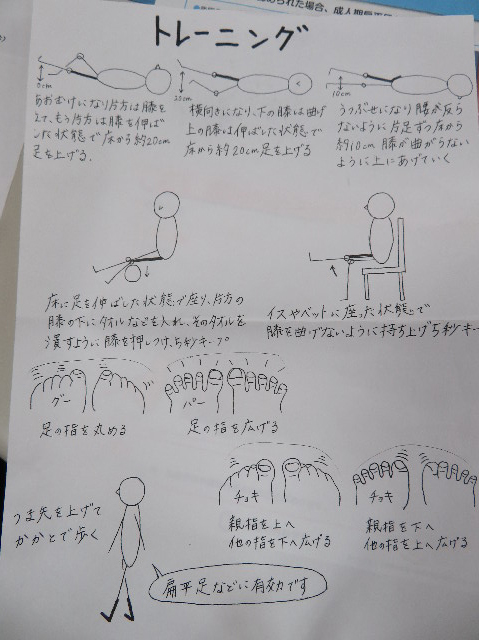 められた場合、成人期扁平足
トレーニング
20cm
20cm
10cm
あおむけになり片方は膝を
立て、もう片方は膝を伸ばし
た状態で床から約20cm
足を上げる.
横向きになり、下の膝は曲げ
上の膝は伸ばした状態で
床から約20cm足を上げる
うつぶせになり腰が反ら
ないように片足ずつ床から
約10cm 膝が曲がらない
ように上にあげていく
床に足を伸ばした状態で座り、片方の
膝の下にタオルなどを入れ、そのタオルを
潰すように膝を押しつけ、5秒キープ
イスやベットに座った状態で
膝を曲げないように持ち上げ5秒キー
グー
パー
足の指を丸める
足の指を広げる
チョキ
チョキ
親指を上へ
他の指を下へ広げる
親指を下へ
他の指を上へ広げる
つま先を上げて
かかとで歩く
扁平足などに有効です